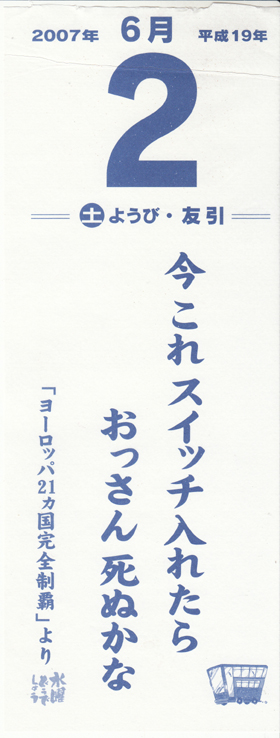 2007年 6月 平成19年
2
土ようび・友引
今これスイッチ入れたら
おっさん死ぬかな
「ヨーロッパ21ヵ国完全制覇」より
水曜
どうで
しょう